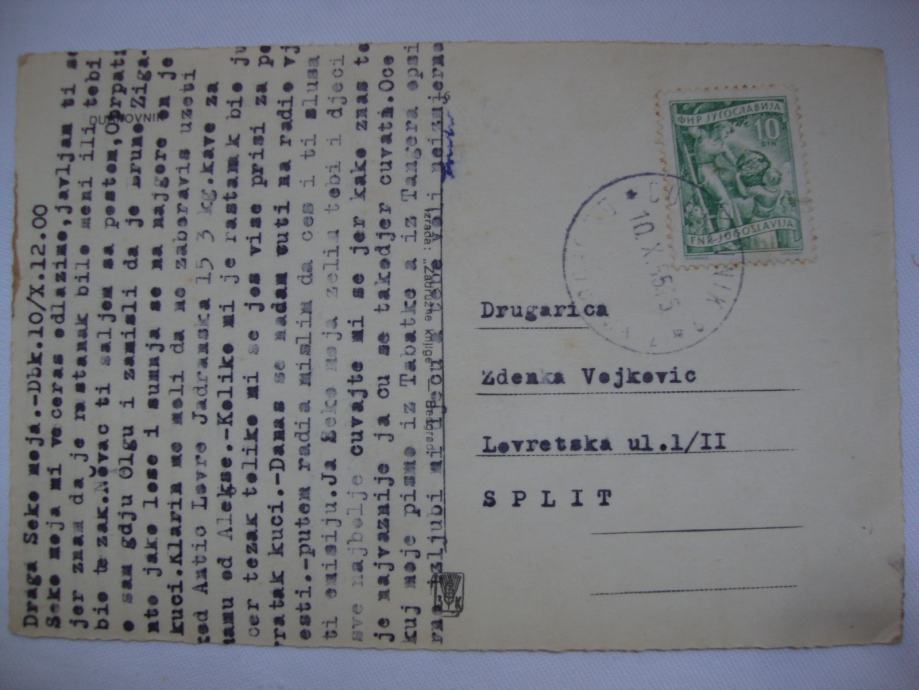 Draga Seko moja.-Dbk.10/X.12.00
Seko moja mi veceras odlazimo,javljam ti se
jer znam da je rastanak bilo meni ili tebi
bio tezak.Novac ti saljem sa postom,Obrpati
o sam gdju Olgu i zamisli da je Brune Ziga.
nto jako lose i sumnja se na najgore on je
kuci.Klarin me moli da ne zaboravis uzeti
red Antic Lovre Jadranska 15 3 kg.kave za
mamu od Alekse.-Koliko mi je rastanak bio ju
cer tezak toliko mi se jos vise prisi za po
vratak kuci.-Danas se nadam cuti na radio vj
esti.-putem radia mislim da ces i ti slusa
ti emisiju.Ja Seko moja zelim tebi i djeci
sve najbolje cuvajte mi se jer kako znas to
je najvaznije ja cu se takodjer cuvath.Oce
kuj moje pismo iz Tabatke a iz Tangera opsi
izljubi mi djecu a tebe voli neizmjerno
DUBROVNIK
Izrada: "Zadružne knjige" — Beograd
ФНР ЈУГОСЛАВИЈА
10
DIN
FNR JUGOSLAVIJA
10.X.55.15
Drugarica
Zdenka Vojkovic
Lovretska ul.1/II
S P L I T